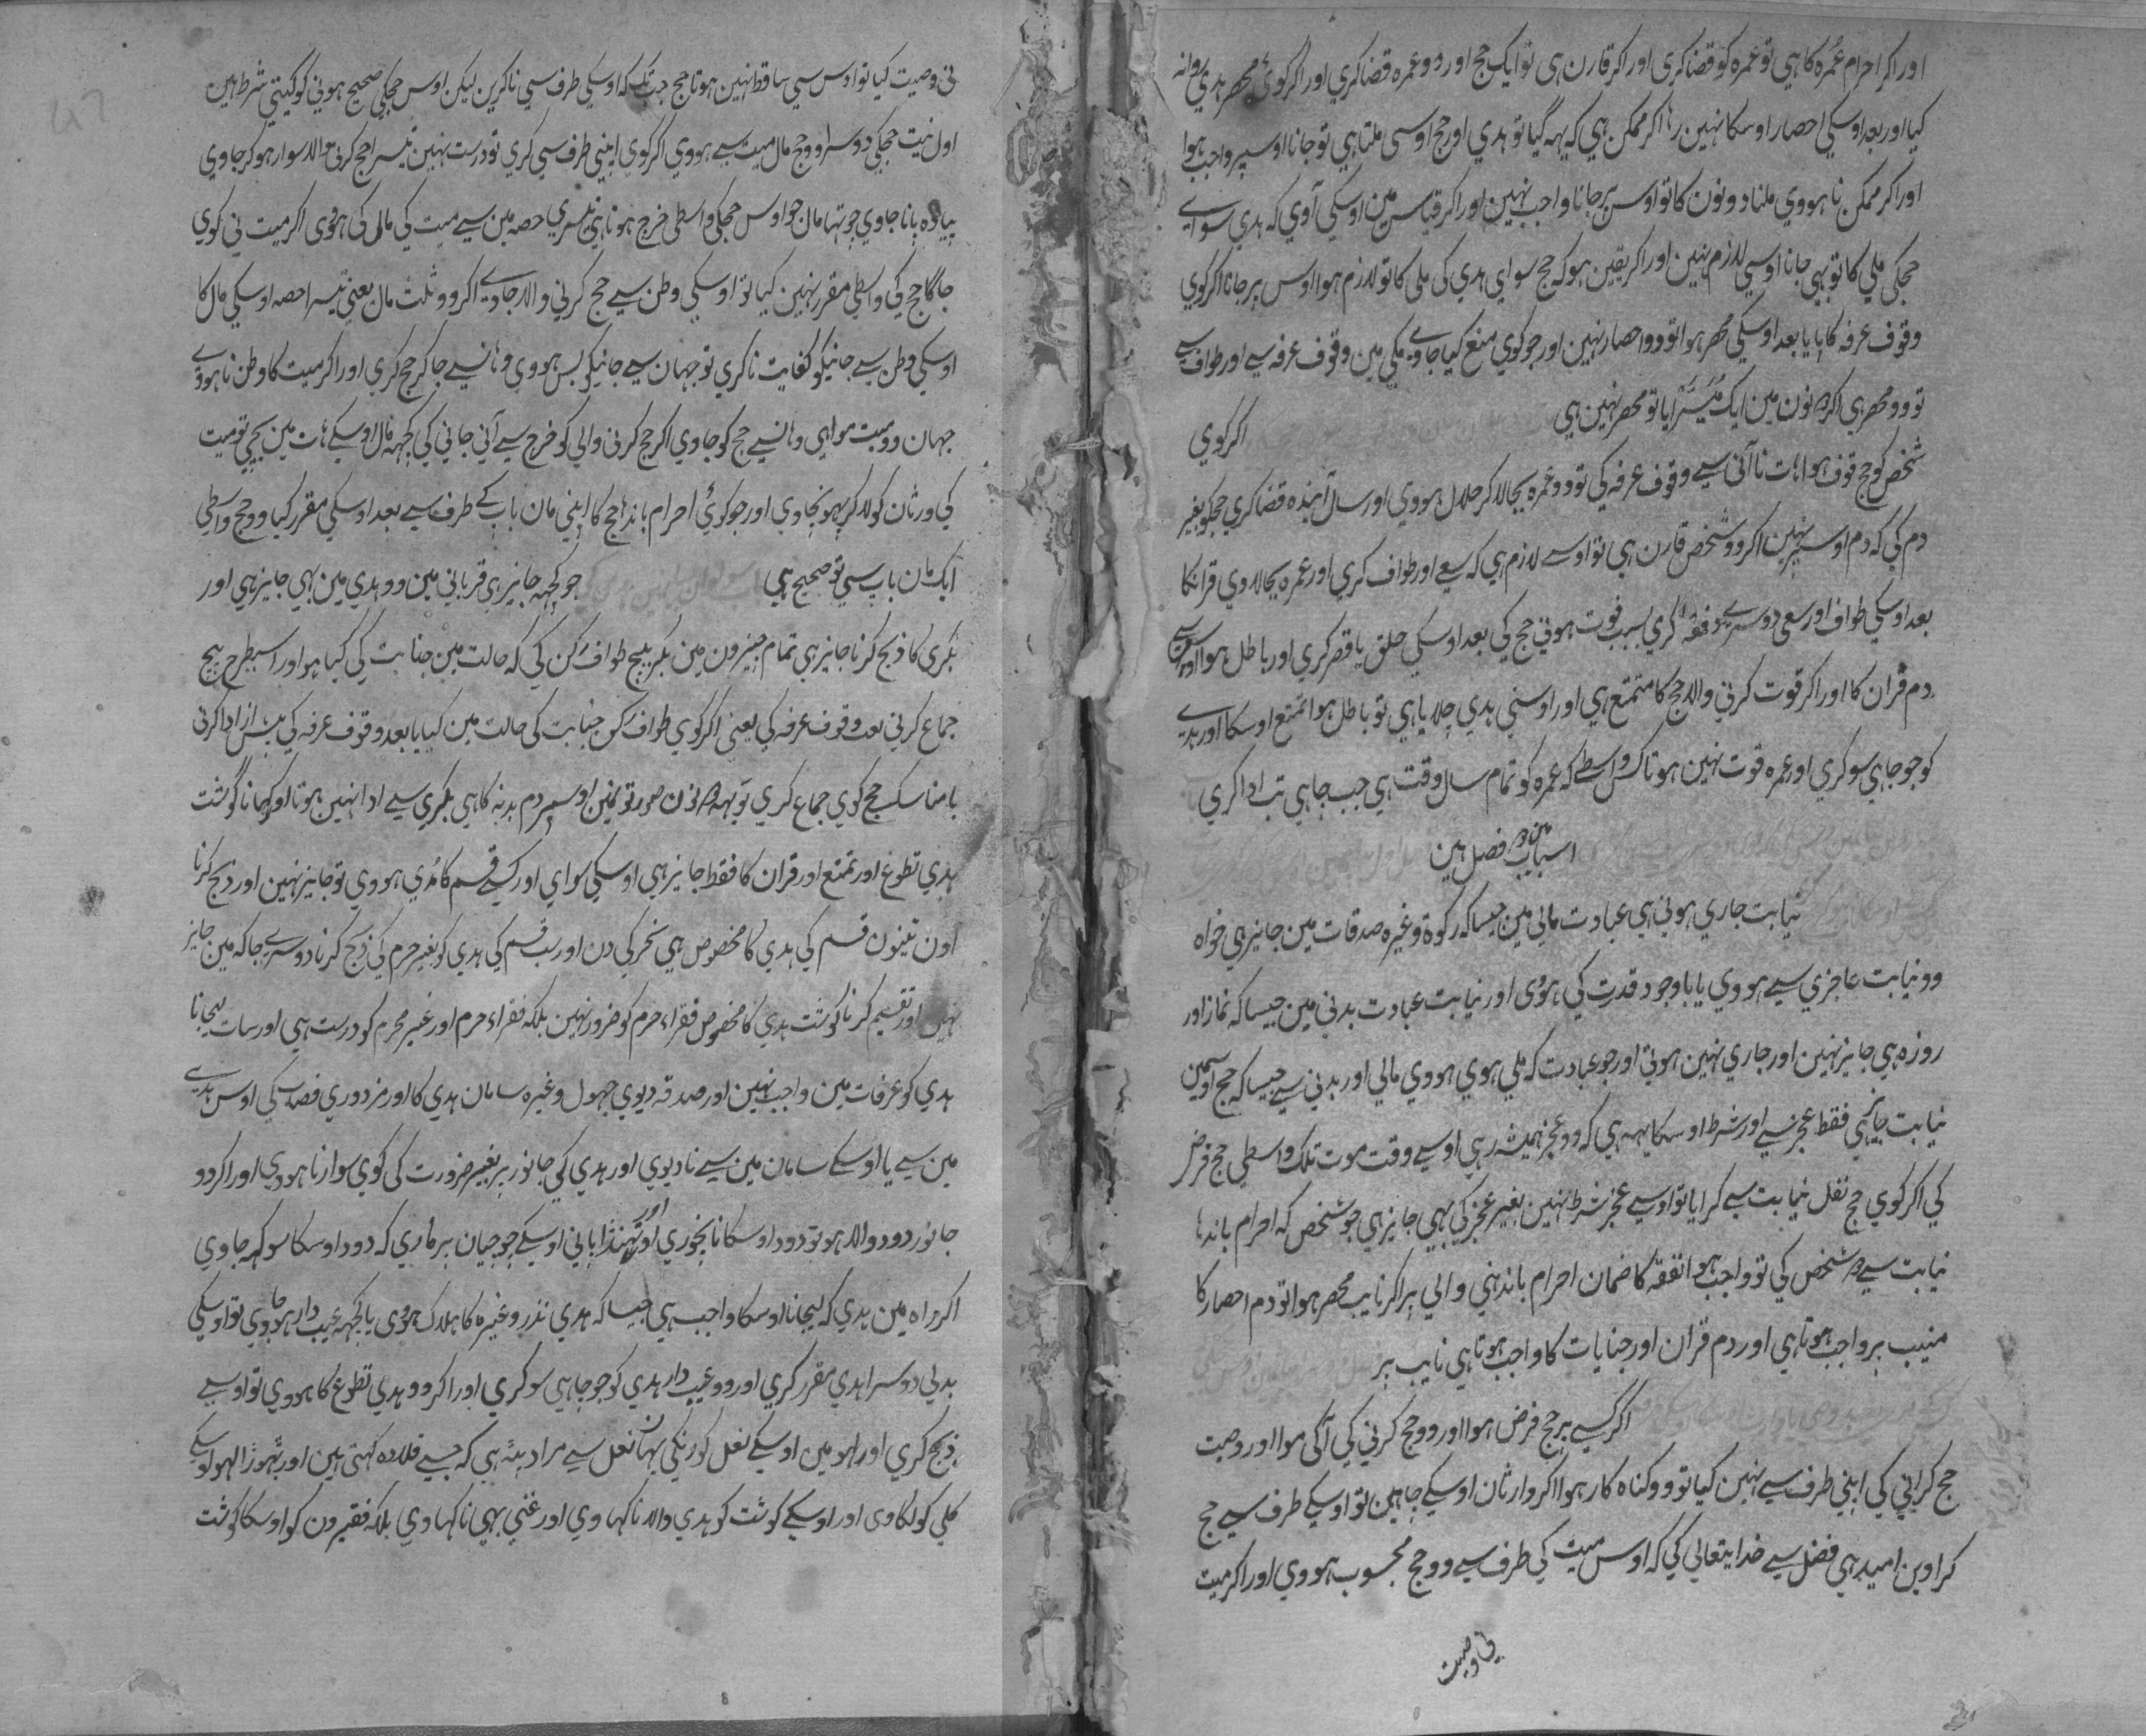 اور اکر احرام عمره کا هی تو عمره کو قضا کری اور اکر قارن هی تو ایک حج اور دو عمره قضا کری اور اکر کوئی محصر هدی روانه
کیا اور بعد اوسکی احصار اوسکا نهین رها اکر ممکن هی که یهه گیا تو هدی اور حج اوسی ملتا هی تو جانا اوسپر واجب هوا
اور اکر ممکن نا هووی ملنا دونون کا تو اوس پر جانا واجب نهین اور اکر قیاس مین اوسکی آوی که هدی سوای
حجکی ملی کا تو بهی جانا اوسی لازم نهین اور اکر یقین هو که حج سوای هدی کی ملی کا تو لازم هوا اوس پر جانا اکر کوی
وقوف عرفه کا پایا بعد اوسکی محصر هوا تو وو احصار نهین اور جو کوی منع کیا جاوی مکی مین وقوف عرفه سے اور طواف سے
تو وو محصر هی اکر دونون مین ایک میسر آیا تو محصر نهین هی
اکر کوی
شخص کو حج فوت هوا هات نا آنی سے وقوف عرفه کی تو وو عمره بجا لا کر حلال هووی اور سال آینده قضا کری حجکو بغیر
دم کی که دم اوسپر نهین اکر وو شخص قارن هی تو اوسے لازم هی که سعے اور طواف کری اور عمره بجا لاوی قرانکا
بعد اوسکی طواف اور سعی دوسرے دفعه کری بسبب فوت هونی حج کی بعد اوسکی حلق یا قصر کری اور باطل هوا اوس سے
دم قران کا اور اکر فوت کرنی والا حج کا متمتع هی اور اوسنی هدی چلایا هی تو باطل هوا تمتع اوسکا اور هدے
کو جو چاهی سو کری اور عمره فوت نهین هوتا کس واسطے که عمره کو تمام سال وقت هی جب چاهی تب ادا کری
اسباب مین دو فصل هین
نیابت جاری هوتی هی عبادت مالی مین جیسا که زکوة وغیره صدقات مین جایز هی خواه
وو نیابت عاجزی سے هووی یا با وجود قدرت کی هووی اور نیابت عبادت بدنی مین جیسا که نماز اور
روزه هی جایز نهین اور جاری نهین هوتی اور جو عبادت که ملی هوی هووی مالی اور بدنی سے جیسا که حج اوسمین
نیابت جایز هی فقط عجز سے اور شرط اوسکا یهه هی که وو عجز همیشه رهی اوسے وقت موت تلک واسطی حج فرض
کی اکر کوی حج نفل نیابت سے کرایا تو اوسے عجز شرط نهین بغیر عجز کی بهی جایز هی جو شخص که احرام باندها
نیابت سے دو شخص کی تو واجب هوا نفقه کا ضمان احرام باندهنی والی پر اکر نایب محصر هوا تو دم احصار کا
منیب پر واجب هوتا هی اور دم قران اور جنایات کا واجب هوتا هی نایب پر
اکر کسے پر حج فرض هوا اور وو حج کرنی کی آکی موا اور وصیت
حج کرانی کی اپنی طرف سے نهین کیا تو وو کناه کار هوا اکر وارثان اوسکے چاهین تو اوسکے طرف سے حج
کراوین امید هی فضل سے خدایتعالی کی که اوس میت کی طرف سے وو حج محسوب هووی اور اکر میت
نی وصیت کیا تو اوس سی ساقط نهین هوتا حج جب تک که اوسکی طرف سی نا کرین لیکن اوس حجکی صحیح هونی کو کیتی شرط هین
اول نیت حجکی دوسرا وو حج مال میت سے هووی اکر کوی اپنی طرف سی کری تو درست نهین تیسرا حج کرنی والا سوار هو کر جاوی
پیاده پا نا جاوی چوتها مال جو اوس حجکی واسطی خرج هوتا هی تیسری حصه مین سے میت کی مال کی هووی اکر میت نی کوی
جاگا حج کی واسطی مقرر نهین کیا تو اوسکی وطن سے حج کرنی والا جاوے اکر وو ثلث مال یعنی تیسرا حصه اوسکی مال کا
اوسکی وطن سے جانیکو کفایت نا کری تو جهان سے جانیکو بس هووی وهانسے جا کر حج کری اور اکر میت کا وطن نا هووے
جهان وو میت موا هی وهانسے حج کو جاوی اکر حج کرنی والی کو خرج سے آنی جانی کی کچهه مال اوسکے هات مین بچی تو میت
کی ورثان کو لا کر پهونچاوی اور جو کوئی احرام باندها حج کا اپنی مان باپ کے طرف سے بعد اوسکی مقرر کیا وو حج واسطی
ایک مان باپ سی تو صحیح هی
جو کچهه جایز هی قربانی مین وو هدی مین بهی جایز هی اور
بکری کا ذبح کرنا جایز هی تمام چیزون مین مکر بیچ طواف رکن کی که حالت مین جنابت کی کیا هو اور اسیطرح بیچ
جماع کرنی بعد وقوف عرفه کی یعنی اکر کوی طواف رکن جنابت کی حالت مین کیا یا بعد وقوف عرفه کی پیش از ادا کرنی
یا مناسک حج کوی جماع کری تو یهه دونون صورتو نمین اوسپر دم بدنه کا هی بکری سے ادا نهین هوتا اور کهانا گوشت
هدی تطوع اور تمتع اور قران کا فقط جایز هی اوسکی سوای اور کسے قسم کا هدی هووی تو جایز نهین اور ذبح کرنا
اون تینون قسم کی هدی کا مخصوص هی نحر کی دن اور سب قسم کی هدی کو بغیر حرم کی ذبح کرنا دوسرے جاکه مین جایز
نهین اور تقسیم کرنا کوشت هدی کا مخصوص فقراء حرم کو ضرور نهین بلکه فقراء حرم اور غیر محرم کو درست هی اور سات لیجانا
هدی کو عرفات مین واجب نهین اور صدقه دیوی جهول وغیره سامان هدی کا اور مزدوری قصاب کی اوس هدے
مین سے یا اوسکے سامان مین سے نا دیوی اور هدی کی جانور پر بغیر ضرورت کی کوی سوار نا هووی اور اکر وو
جانور دود والا هو تو دود اوسکا نا نچوری اور تهنڈا پانی اوسکے چوچیان پر ماری که دود اوسکا سوکهه جاوی
اکر راه مین هدی که لیجانا اوسکا واجب هی جیسا که هدی نذر وغیره کا هلاک هووی یا کچهه عیب دار هو جاوی تو اوسکی
بدلی دوسرا هدی مقرر کری اور وو عیب دار هدی کو جو چاهی سو کری اور اکر وو هدی تطوع کا هووی تو اوسے
ذبح کری اور لهو مین اوسکے نعل کو رنکی یهان نعل سے مراد پٹه هی که جسے قلاده کهتی هین اور تهوڑا لهو اوسکے
کلی کو لکاوی اور اوسکے کوشت کو هدی والا نا کهاوی اور غنی بهی نا کهاوی بلکه فقیرون کو اوسکا کوشت